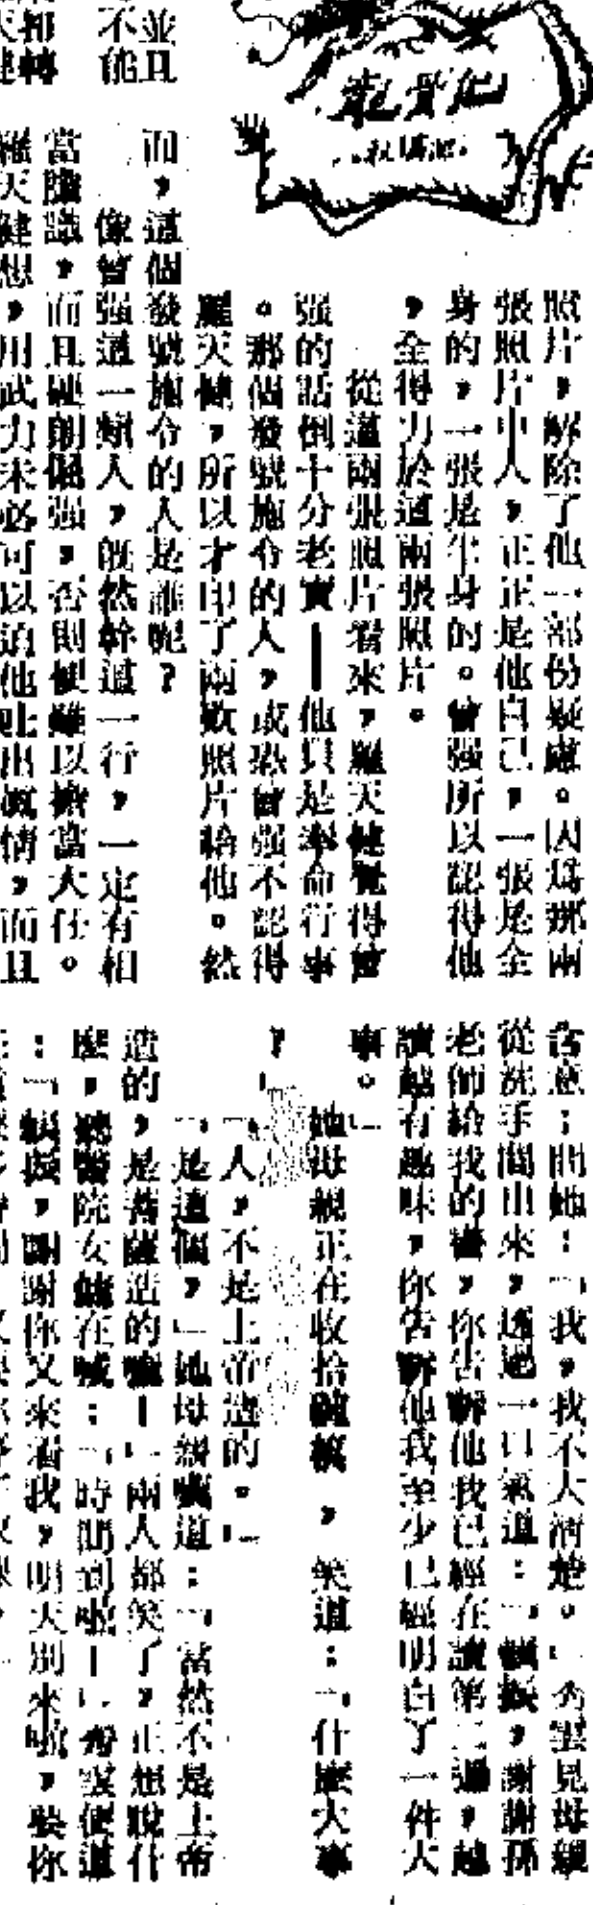 照片，解除了他一部份疑慮。因爲那兩
張照片中人，正正是他自己，一張是全
身的，一張是半身的。曾强所以認得他
，全得力於這兩張照片。
從這兩張照片看來，羅天健覺得曾
强的話倒十分老實——他只是奉命行事
。那個發號施令的人，或恐曾强不認得
羅天健，所以才印了兩張照片給他。然
而，這個發號施令的人是誰呢？
像曾强這一類人，旣然幹這一行，一定有相
當膽識，而且硬朗倔强，否則便難以擔當大任。
羅天健想，用武力未必可以迫他吐出眞情，而且
並且
不能
都轉
含意；問她：「我，我不大淸楚。」秀雲見母親
從洗手間出來，透過一口氣道：「振，謝謝孫
老師給我的書，你告訴他我已經在讀第二遍，越
讀越有趣味，你告訴他我至少已經明白了一件大
事。」
她母親正在收拾，笑道：「什麼大事
？」
「人，不是上帝造的。」
「是這個，」她母親嘆道：「當然不是上帝
造的，是菩薩造的嘛！」兩人都笑了，正想說什
麼，聽醫院女在喊：「時間到啦！」秀雲便道
：「振，謝謝你又來看我，明天別來啦，要你